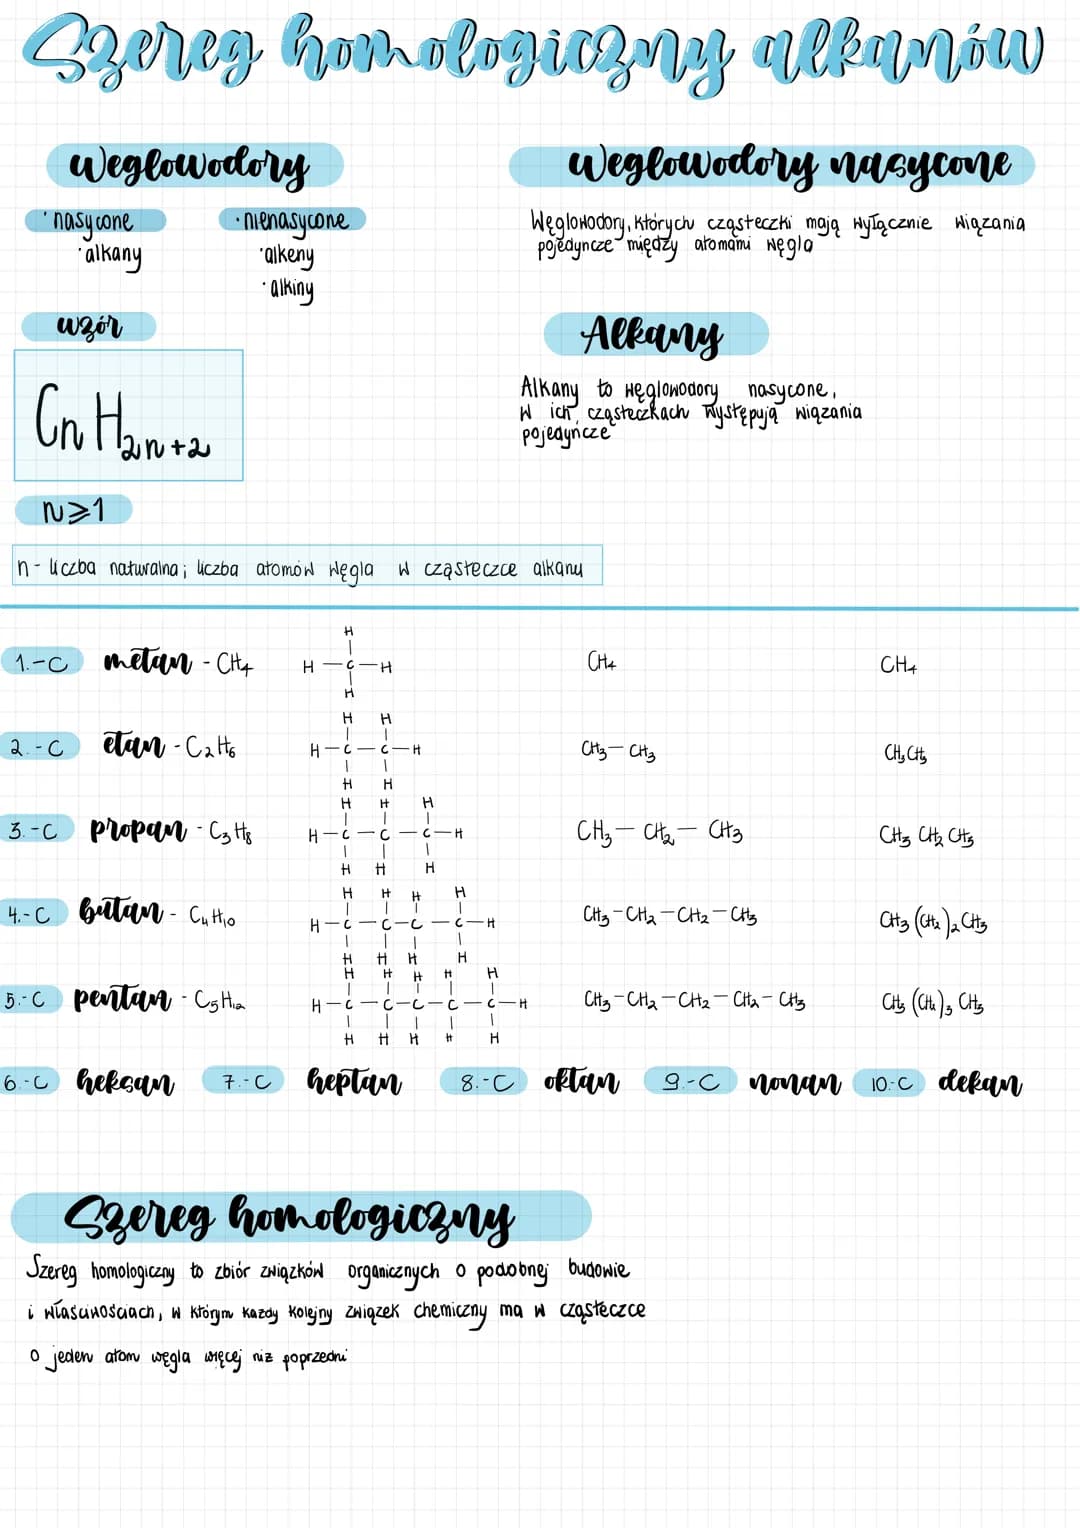 Szereg homologiczny alkanów
Węglowodory
· nasycone
· alkany
· nienasycone
· alkeny
· alkiny
wzór
CnH2n+2
n⩾1
n - liczba naturalna; liczba atomów węgla w cząsteczce alkanu
Węglowodory nasycone
Węglowodory, których cząsteczki mają wyłącznie wiązania
pojedyncze między atomami węgla
Alkany
Alkany to węglowodory nasycone,
w ich cząsteczkach występują wiązania
pojedyncze
1.-C metan - CH4
H
H-C-H
H
CH4
CH4
2.-C etan - C2H6
H H
H-C-C-H
H H
CH3-CH3
CH3CH3
3.-C propan - C3H8
H H H
H-C-C-C-H
H H H
CH3-CH2-CH3
CH3 CH2 CH3
4.-C butan - C4H10
H H H H
H-C-C-C-C-H
H H H H
CH3-CH2-CH2-CH3
CH3 (CH2)2 CH3
5.-C pentan - C5H12
H H H H H
H-C-C-C-C-C-H
H H H H H
CH3-CH2-CH2-CH2-CH3
CH3 (CH2)3 CH3
6.-C heksan 7.-C heptan 8.-C oktan 9.-C nonan 10.-C dekan
Szereg homologiczny
Szereg homologiczny to zbiór związków organicznych o podobnej budowie
i właściwościach, w którym każdy kolejny związek chemiczny ma w cząsteczce
o jeden atom węgla więcej niż poprzedni